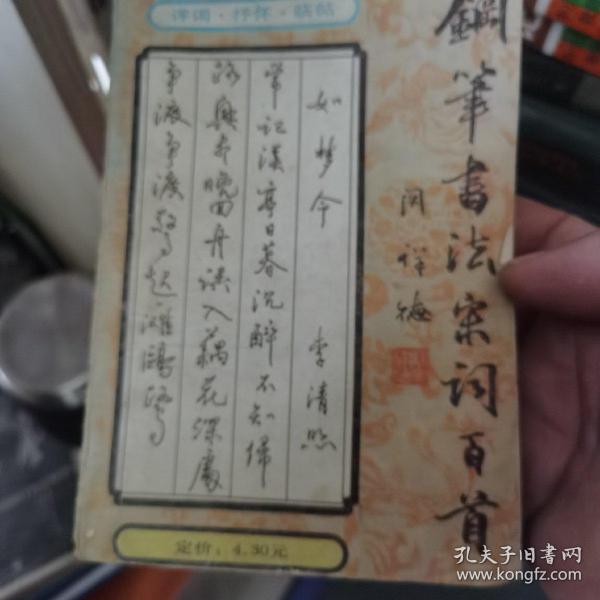 鋼筆書法宋词百首
闵祥德
译词·抒怀·临帖
如梦令 李清照
常记溪亭日暮沉醉不知归
路興尽晚回舟误入藕花深處
争渡争渡驚起滩鷗鹭
定价：4.30元
孔夫子旧书网
www.kongfz.com